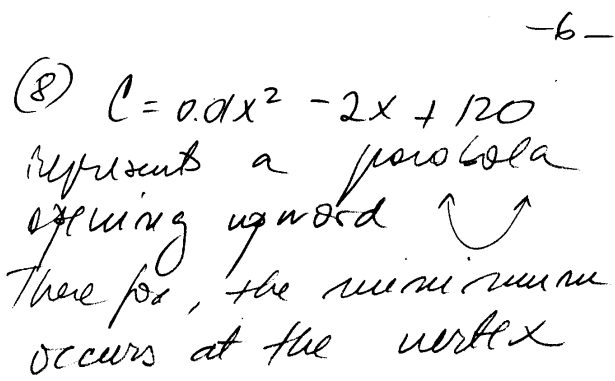 -6-
(8) C = 0.01x² - 2x + 120
represents a parabola
opening upword
There for, the minimum
occurs at the vertex